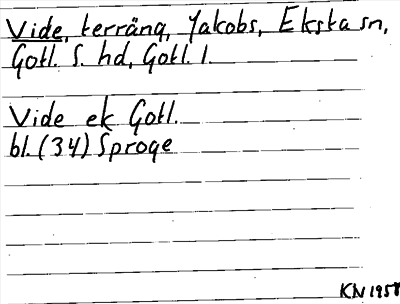 Vide, terräng, Jakobs, Eksta sn,
Gotl. S. hd, Gotl. l.
Vide ek Gotl.
bl. (34) Sproge
KN 1958